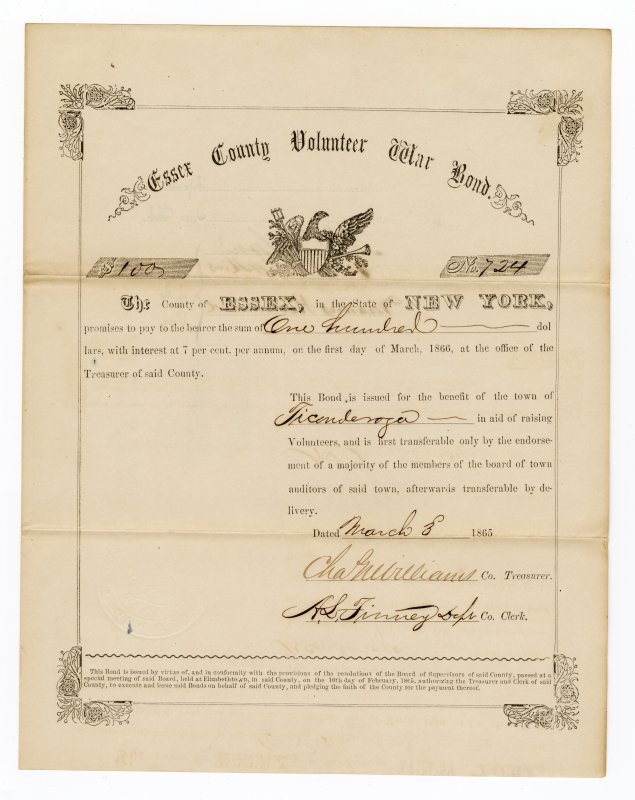 Essex County Volunteer War Bond.
$ 100
No. 724
The County of ESSEX, in the State of NEW YORK,
promises to pay to the bearer the sum of One hundred dol
lars, with interest at 7 per cent. per annum, on the first day of March, 1866, at the office of the
Treasurer of said County.
This Bond is issued for the benefit of the town of
Ticonderoga in aid of raising
Volunteers, and is first transferable only by the endorse-
ment of a majority of the members of the board of town
auditors of said town, afterwards transferable by de-
livery.
Dated March 8 1865
Chas N Williams Co. Treasurer.
A. L. Finney Dept Co. Clerk.
This Bond is issued by virtue of, and in conformity with the provisions of the resolutions of the Board of Supervisors of said County, passed at a
special meeting of said Board, held at Elizabethtown, in said County, on the 10th day of February, 1865, authorizing the Treasurer and Clerk of said
County, to execute and issue said Bonds on behalf of said County, and pledging the faith of the County for the payment thereof.